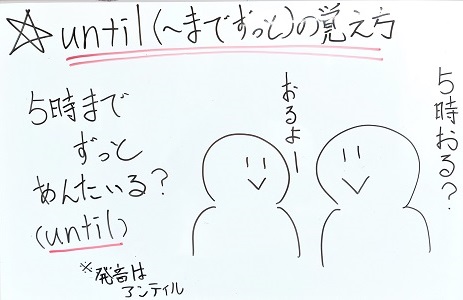 ☆until(〜までずっと)の覚え方
5時まで
ずっと
あんたいる？
(until)
※発音は
アンティル
おるよー
5時おる？